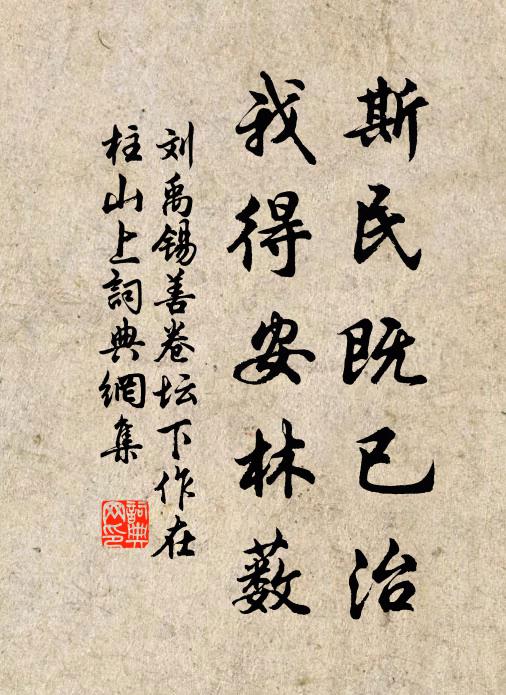 斯民既已治
我得安林薮
刘禹锡善卷坛下作在
柱山上詞典網集
詞典網印